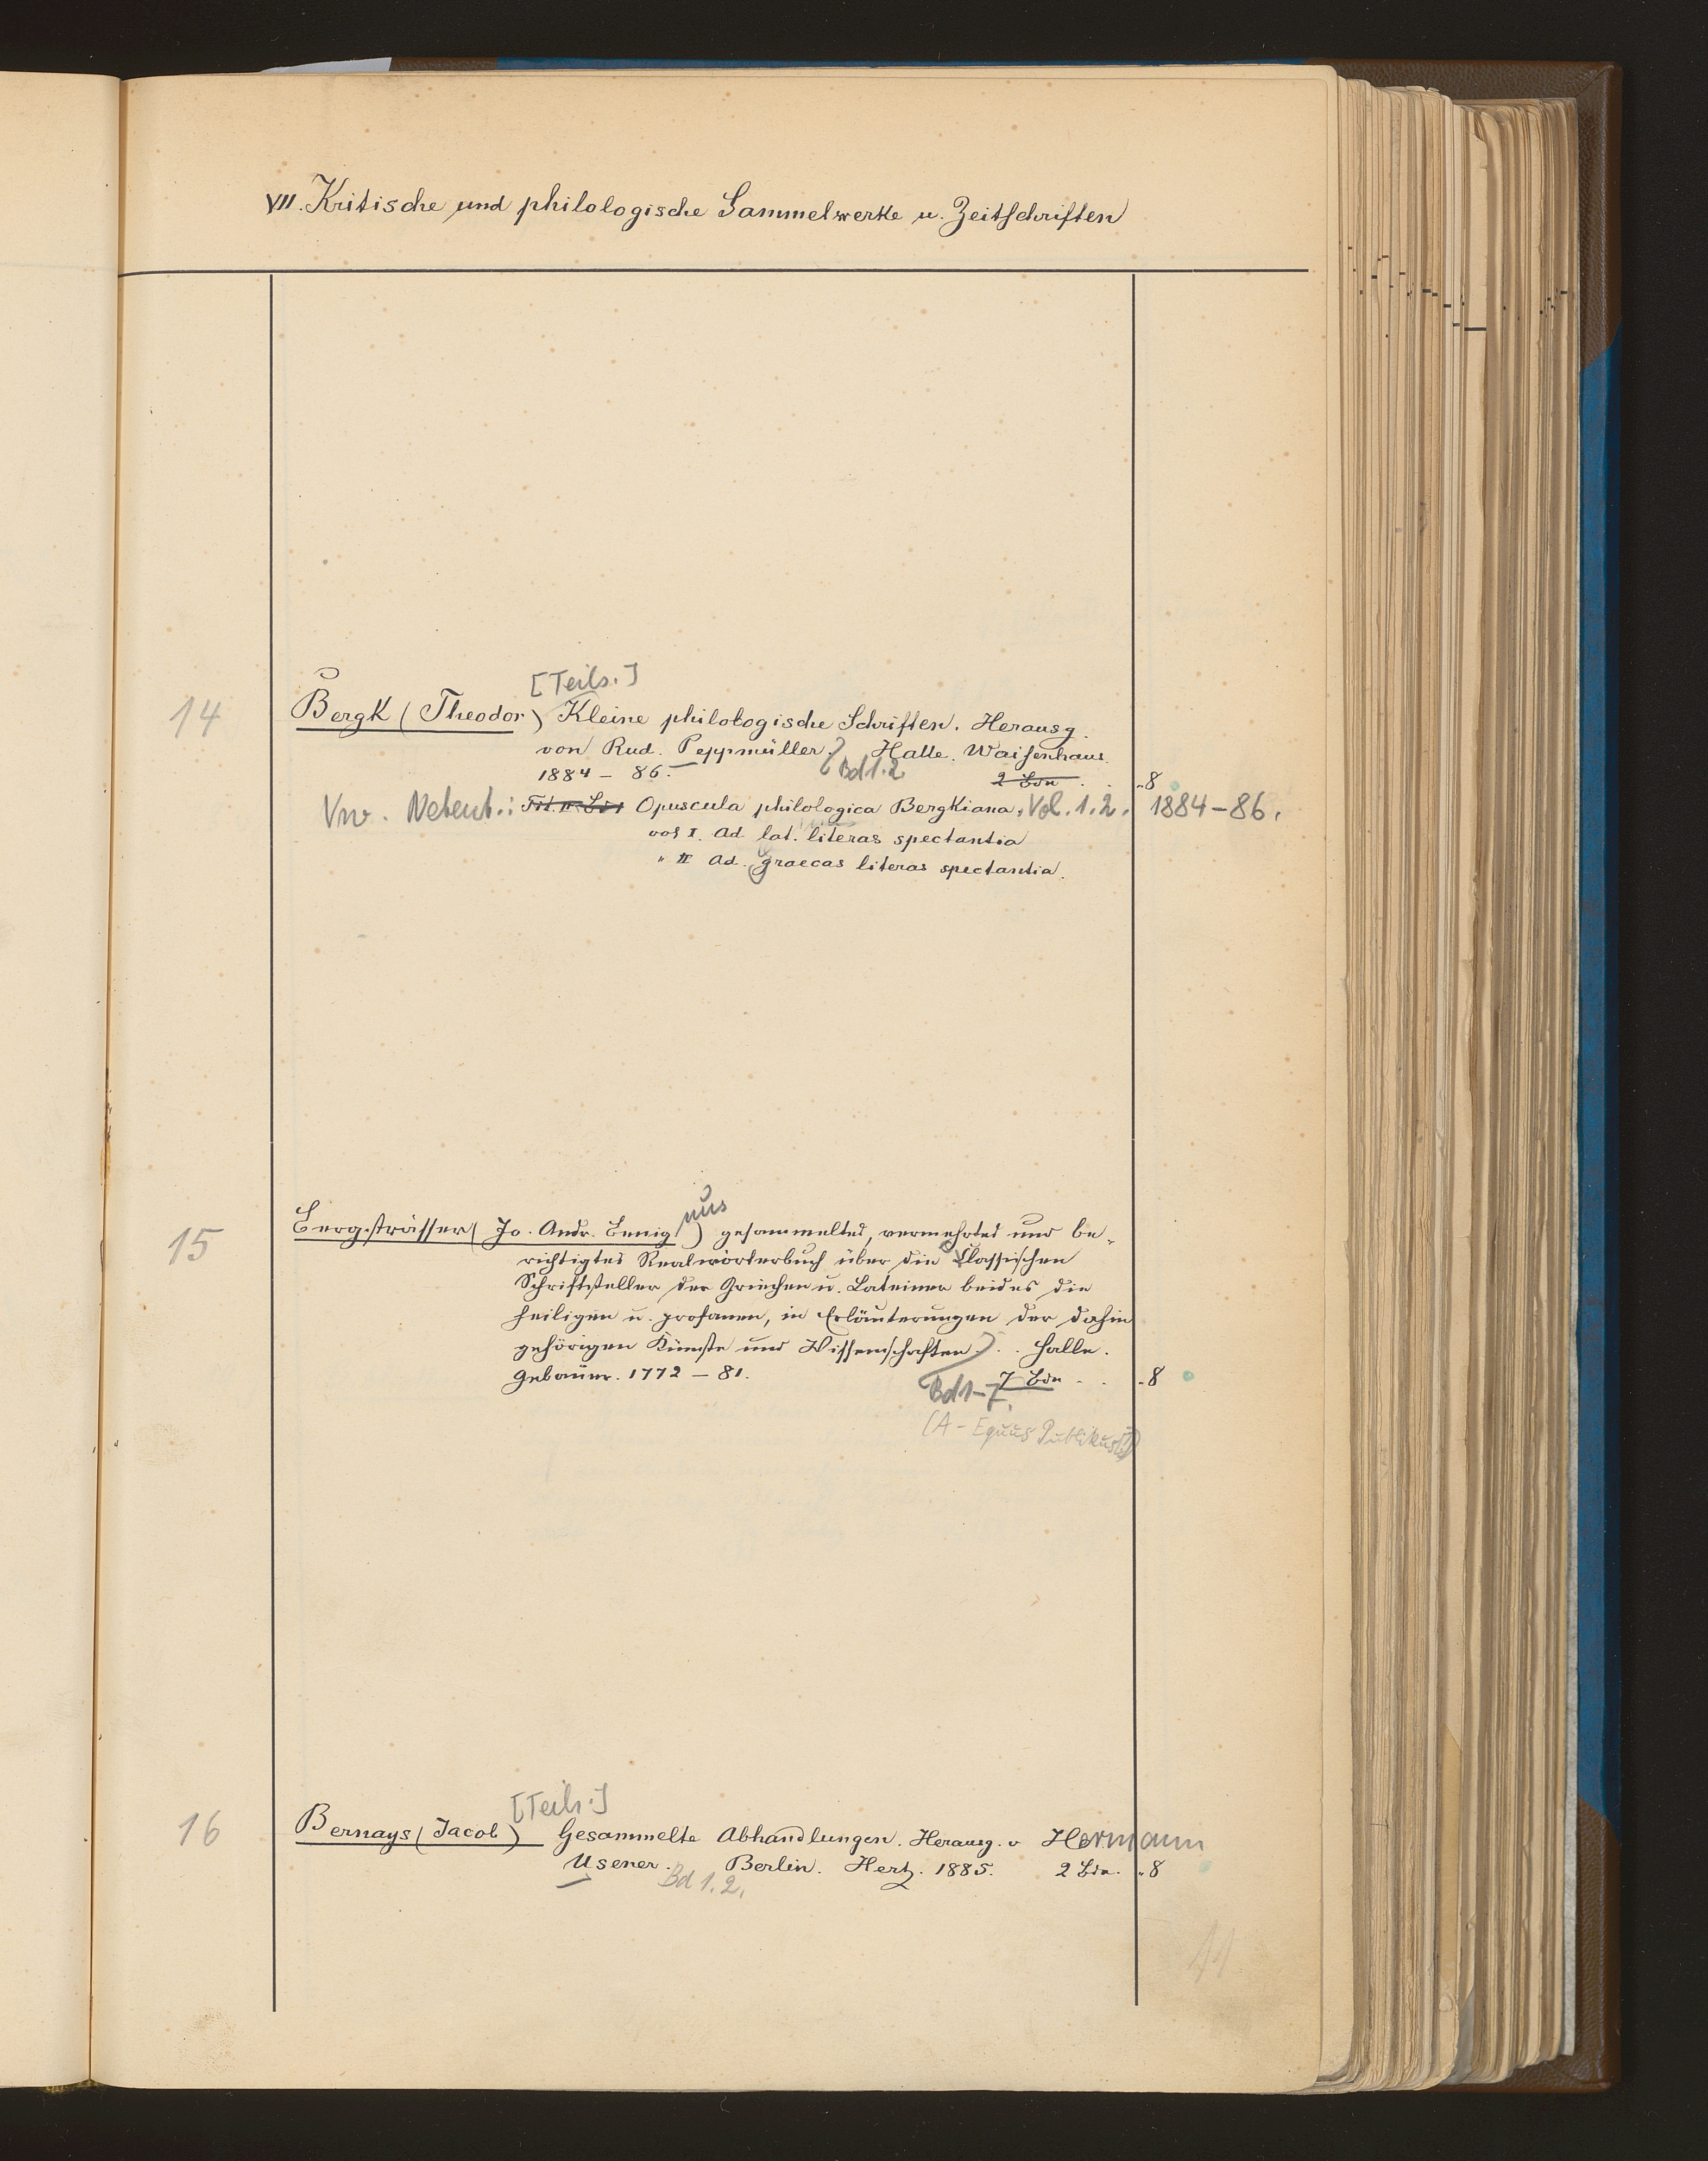 VII. Kritische und philologische Sammelwerke u. Zeitschriften
[Teils.]
14 Bergk (Theodor) Kleine philologische Schriften. Herausg.
von Rud. Peppmüller. Halle. Waisenhaus.
1884 – 86. Bd 1.2 2 Bde . . „8
Vw. Nebent.: Tit. n. Bd.: Opuscula philologica Bergkiana. Vol. 1.2. 1884–86.
vol I. Ad lat. literas spectantia
„ II Ad. graecas literas spectantia.
nus
15 Bergsträsser (Jo. Andr. Benig) gesammeltes, vermehrtes und be-
richtigtes Realwörterbuch über die Classischen
Schriftsteller der Griechen u. Lateiner beides die
heiligen u. profanen, in Erläuterungen der dahin
gehörigen Künste und Wissenschaften. . . Halle.
Gebauer. 1772 – 81. 7 Bde . . „8
Bd 1–7.
(A – Equus Publikus)
[Teils.]
16 Bernays (Jacob) Gesammelte Abhandlungen. Herausg. v Hermann
Usener. Berlin. Hertz. 1885. 2 Bde. „8
Bd 1.2.